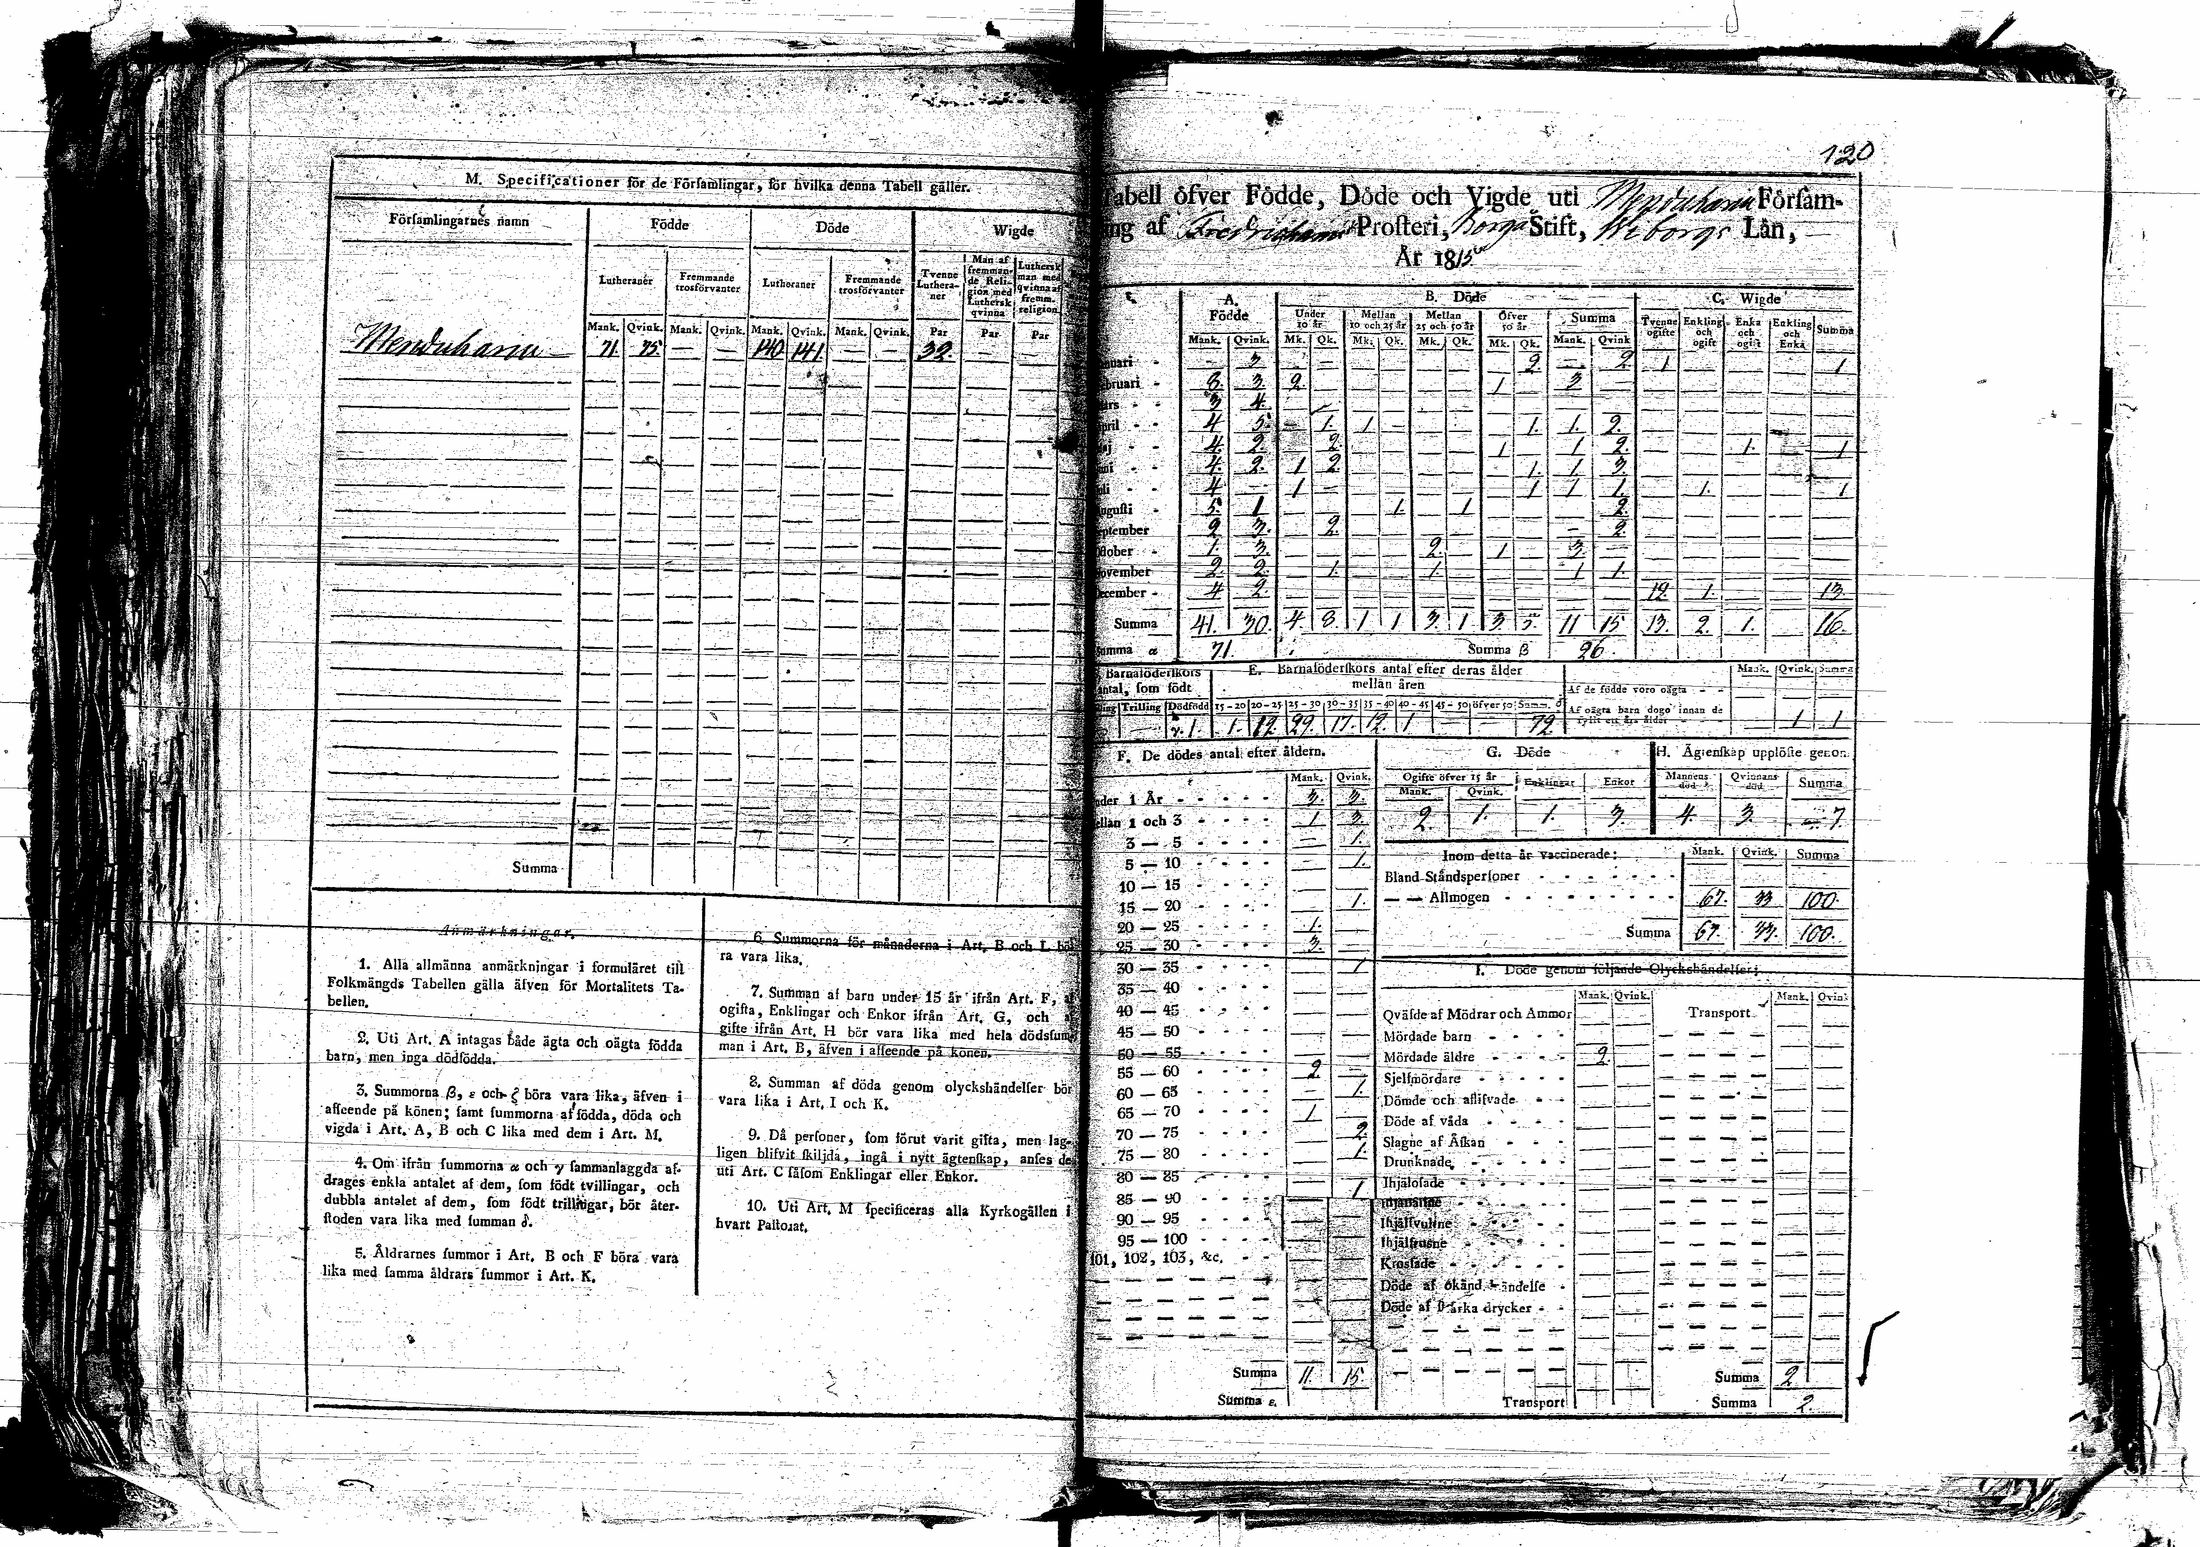 M. Specificationer för de Församlingar, för hvilka denna Tabell gäller.
Församlingarnes namn Födde Döde Wigde
Lutheraner Fremmande trosförvanter Lutheraner Fremmande trosförvanter Tvenne Lutheraner Man af fremmande Religion med Luthersk qvinna Luthersk man med qvinna af fremm. religion
Mank. Qvink. Mank. Qvink. Mank. Qvink. Mank. Qvink. Par Par Par
71. 75. — — 140 141. — — 32. — —
Summa
Anmärkningar.
1. Alla allmänna anmärkningar i formuläret till
Folkmängds Tabellen gälla äfven för Mortalitets Ta-
bellen.
2. Uti Art. A intagas både ägta och oägta födda
barn, men inga dödfödda.
3. Summorna β, ε och ζ böra vara lika, äfven i
afseende på könen; samt summorna af födda, döda och
vigda i Art. A, B och C lika med dem i Art. M.
4. Om ifrån summorna α och γ sammanlaggda af-
drages enkla antalet af dem, som födt tvillingar, och
dubbla antalet af dem, som födt trillingar, bör åter-
stoden vara lika med summan δ.
5. Åldrarnes summor i Art. B och F böra vara
lika med samma åldrars summor i Art. K.
6. Summorna för månaderna i Art. B och L bö-
ra vara lika.
7. Summan af barn under 15 år ifrån Art. F, af
ogifta, Enklingar och Enkor ifrån Art. G, och af
gifte ifrån Art. H bör vara lika med hela dödsfum-
man i Art. B, äfven i afseende på könen.
8. Summan af döda genom olyckshändelser bör
vara lika i Art. I och K.
9. Då personer, som förut varit gifta, men lag-
ligen blifvit skiljda, ingå i nytt ägtenskap, anses de
uti Art. C såsom Enklingar eller Enkor.
10. Uti Art. M specificeras alla Kyrkogällen i
hvart Pastorat.
120
Tabell öfver Födde, Döde och Vigde uti Församl-
ing af Prosteri, Borgå Stift, Wiborgs Län,
År 1815
A. Födde B. Döde C. Wigde
Under 10 år Mellan 10 och 25 år Mellan 25 och 50 år Öfver 50 år Summa Tvenne ogifte Enkling och ogift Enka och ogift Enkling och Enka Summa
Mank. Qvink. Mk. Qk. Mk. Qk. Mk. Qk. Mk. Qk. Mank. Qvink
Januari - 3. 2. 2. 1 1
Februari 8. 3. 2. 1 3.
Mars 3 4.
April 4 5. 1. 1 1. 1. 2.
Maj 4. 2. 2. 1 1 2. 1. 1
Juni 4. 2. 1 2. 1. 1. 3.
Juli 4 - 1 1 1 1. 1. 1
Augusti 5. 1 1. 1 2.
September 2 3. 2. 2.
October 1. 3. 2. 1 3.
November 2. 2. 1. 1. 1 1.
December 4 2. 12. 1. 13.
Summa 41. 30. 4. 8. 1 1 3. 1. 3. 5. 11 15 13. 2. 1. 16.
Summa α 71. Summa β 26.
Barnaföderskors antal, som födt
Trilling Dödfödd
E. Barnaföderskors antal efter deras ålder
mellan åren
15-20 20-25 25-30 30-35 35-40 40-45 45-50 öfver 50 Summ. δ
1. 1. 12. 29. 17. 12. 1 72.
Mank. Qvink. Summa
Af de födde voro oägta
Af oägta barn dogo innan de fyllt ett års ålder 1 1
F. De dödes antal efter åldern.
Mank. Qvink.
Under 1 År 3. 3.
Mellan 1 och 3 1 3.
3 — 5 1.
5 — 10 1.
10 — 15
15 — 20 1.
20 — 25 1.
25 — 30 3.
30 — 35 1
35 — 40
40 — 45
45 — 50
50 — 55
55 — 60 2.
60 — 65 1.
65 — 70 1
70 — 75 2.
75 — 80 1.
80 — 85
85 — 90 1
90 — 95
95 — 100
101, 102, 103, &c.
Summa 11. 15.
Summa ε.
G. Döde
Ogifte öfver 15 år Enklingar Enkor
Mank. Qvink.
2. 1. 1. 3.
H. Ägtenskap upplöste genom
Mannens död Qvinnans död Summa
4. 3. 7.
Inom detta år vaccinerade: Mank. Qvink. Summa
Bland Ståndspersoner
— — Allmogen 67. 33 100.
Summa 67. 33. 100.
I. Döde genom följande Olyckshändelser:
Mank. Qvink. Mank. Qvink
Qväfde af Mödrar och Ammor Transport
Mördade barn
Mördade äldre 2.
Sjelfmördare
Dömde och aflifvade
Döde af våda
Slagne af Åskan
Drunknade
Ihjälsfrusne
Krossade
Döde af okänd händelse
Döde af starka drycker
Summa 2.
Transport Summa 2.